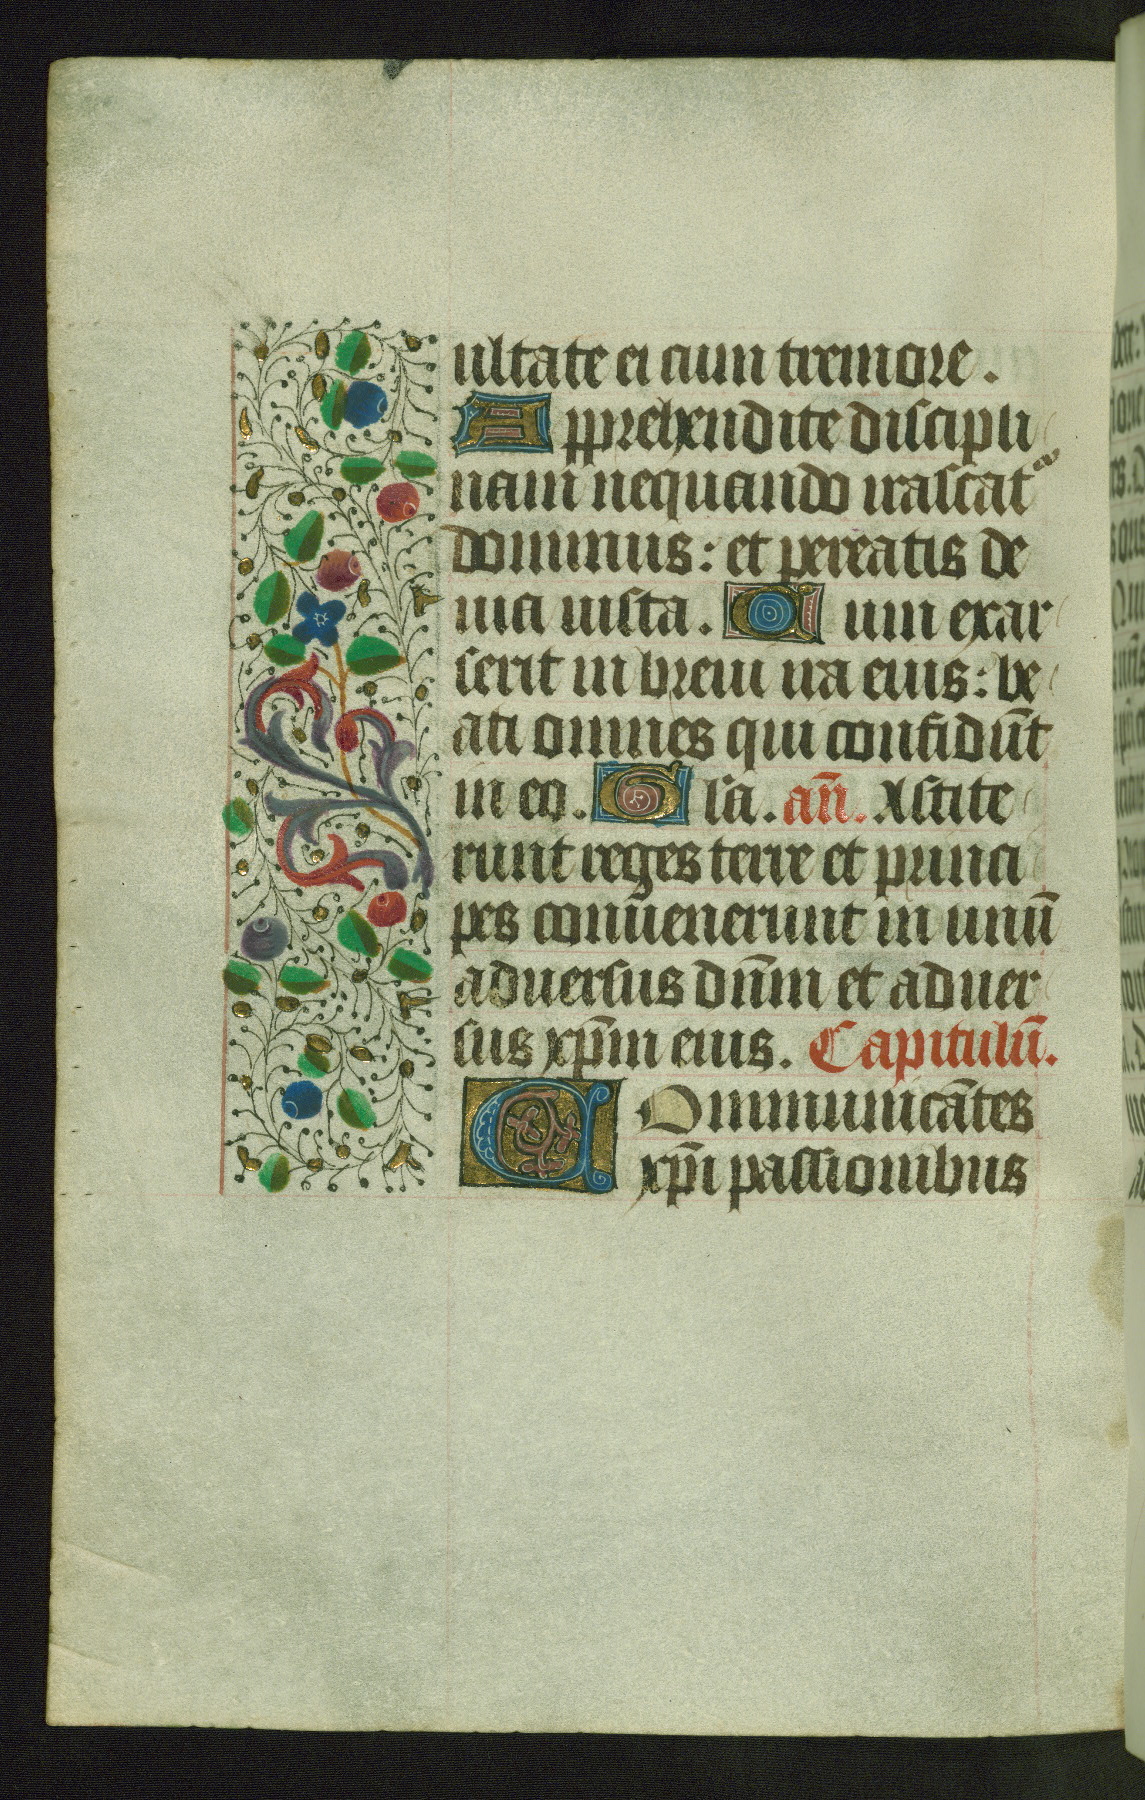 ultate ei cum tremore.
Apprehendite discipli
nam nequando irascat
dominus: et pereatis de
uia iusta. Cum exar
serit in breui ira eius: be
ati omnes qui confidūt
in eo. Gl'a. an̄. Astite
runt reges terre et princi
pes conuenerunt in unū
aduersus dn̄m et aduer
sus xp̄m eius. Capitulū.
COmmunicātes
xp̄i passionibus